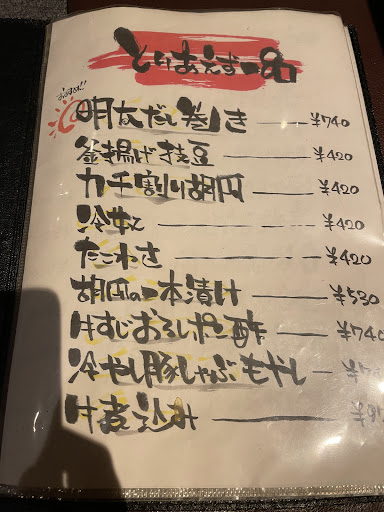 とりあえず一品
おすすめ!!
明太だし巻き ¥740
釜揚げ枝豆 ¥420
カチ割り胡瓜 ¥420
冷やっこ ¥420
たこわさ ¥420
胡瓜の一本漬け ¥530
牛すじおろしポン酢 ¥740
冷やし豚しゃぶもやし
牛煮込み